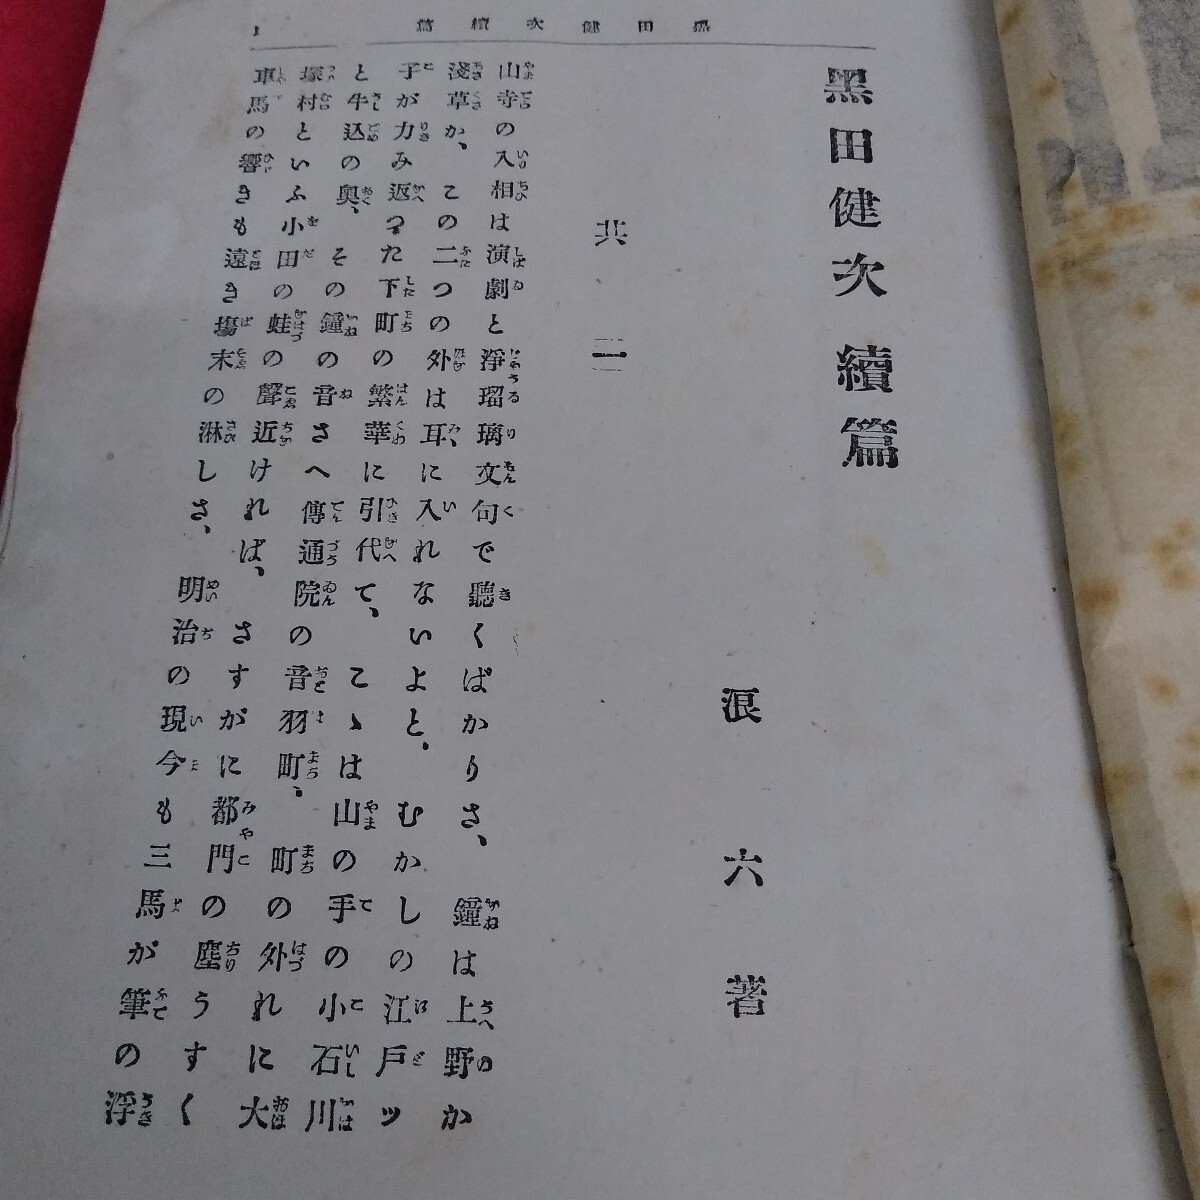 黑田健次續篇
1
黑田健次 續篇
浪六著
其一
山寺の入相は演劇と淨瑠璃文句で聽くばかりさ、鐘は上野か
淺草か、この二つの外は耳に入れないよと、むかしの江戸ッ
子が力み返つた下町の繁華に引代て、こゝは山の手の小石川
と牛込の奥、その鐘の音さへ傳通院の音羽町、町の外れに大
塚村といふ小田の蛙の聲近ければ、さすがに都門の塵うすく
車馬の響きも遠き塲末の淋しさ、明治の現今も三馬が筆の浮